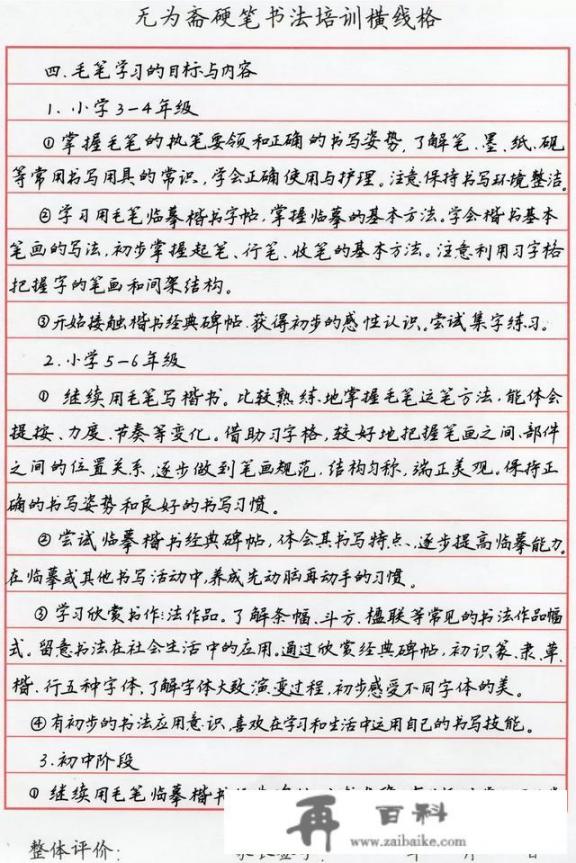 无为斋硬笔书法培训横线格
四.毛笔学习的目标与内容
1.小学3-4年级
①掌握毛笔的执笔要领和正确的书写姿势,了解笔、墨、纸、砚
等常用书写用具的常识,学会正确使用与护理。注意保持书写环境整洁.
②学习用毛笔临摹楷书字帖,掌握临摹的基本方法。学会楷书基本
笔画的写法,初步掌握起笔、行笔、收笔的基本方法。注意利用习字格
把握字的笔画和间架结构。
③开始接触楷书经典碑帖.获得初步的感性认识。尝试集字练习。
2.小学5-6年级
① 继续用毛笔写楷书。比较熟练地掌握毛笔运笔方法,能体会
提按、力度、节奏等变化。借助习字格,较好地把握笔画之间、部件
之间的位置关系,逐步做到笔画规范,结构匀称,端正美观。保持正
确的书写姿势和良好的书写习惯。
② 尝试临摹楷书经典碑帖,体会其书写特点、逐步提高临摹能力.
在临摹或其他书写活动中,养成先动脑再动手的习惯。
③ 学习欣赏书作:法作品。了解条幅、斗方、楹联等常见的书法作品幅
式。留意书法在社会生活中的应用。通过欣赏经典碑帖,初识篆、隶、草、
楷、行五种字体,了解字体大致演变过程,初步感受不同字体的美。
④有初步的书法应用意识,喜欢在学习和生活中运用自己的书写技能。
3.初中阶段
① 继续用毛笔临摹楷书
整体评价:
再百科
www.zaibaike.com